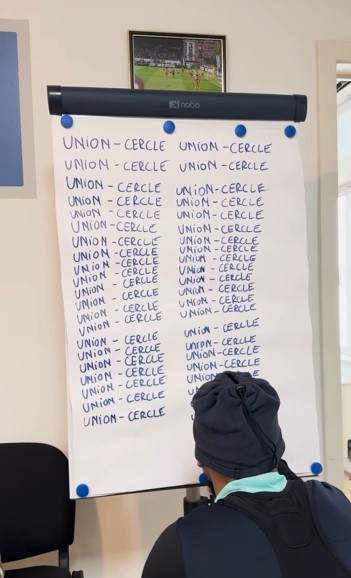 nobo
UNION - CERCLE UNION - CERCLE
UNION - CERCLE UNION - CERCLE
UNION - CERCLE UNION - CERCLE
UNION - CERCLE UNION - CERCLE
UNION - CERCLE UNION - CERCLE
UNION - CERCLE UNION - CERCLE
UNION - CERCLE UNION - CERCLE
UNION - CERCLE UNION - CERCLE
UNION - CERCLE UNION - CERCLE
UNION - CERCLE UNION - CERCLE
UNION - CERCLE UNION - CERCLE
UNION - CERCLE UNION - CERCLE
UNION - CERCLE UNION - CERCLE
UNION - CERCLE UNION - CERCLE
UNION - CERCLE UNION - CERCLE
UNION - CERCLE UNION - CERCLE
UNION - CERCLE UNION - CERCLE
UNION - CERCLE UNION - CERCLE
UNION - CERCLE
UNION - CERCLE